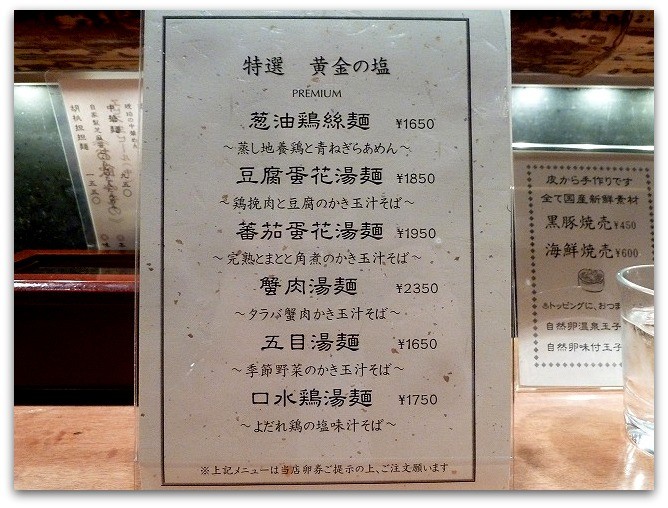 特選 黄金の塩
PREMIUM
葱油鶏絲麺 ¥1650
~蒸し地養鶏と青ねぎらあめん~
豆腐蛋花湯麺 ¥1850
~鶏挽肉と豆腐のかき玉汁そば~
蕃茄蛋花湯麺 ¥1950
~完熟とまとと角煮のかき玉汁そば~
蟹肉湯麺 ¥2350
~タラバ蟹肉かき玉汁そば~
五目湯麺 ¥1650
~季節野菜のかき玉汁そば~
口水鶏湯麺 ¥1750
~よだれ鶏の塩味汁そば~
※上記メニューは当店卵券ご提示の上、ご注文願います
皮から手作りです
全て国産新鮮素材
黒豚焼売 ¥450
海鮮焼売 ¥600
トッピングに、おつま
自然卵温泉玉子
自然卵味付玉子
胡桃担担麺